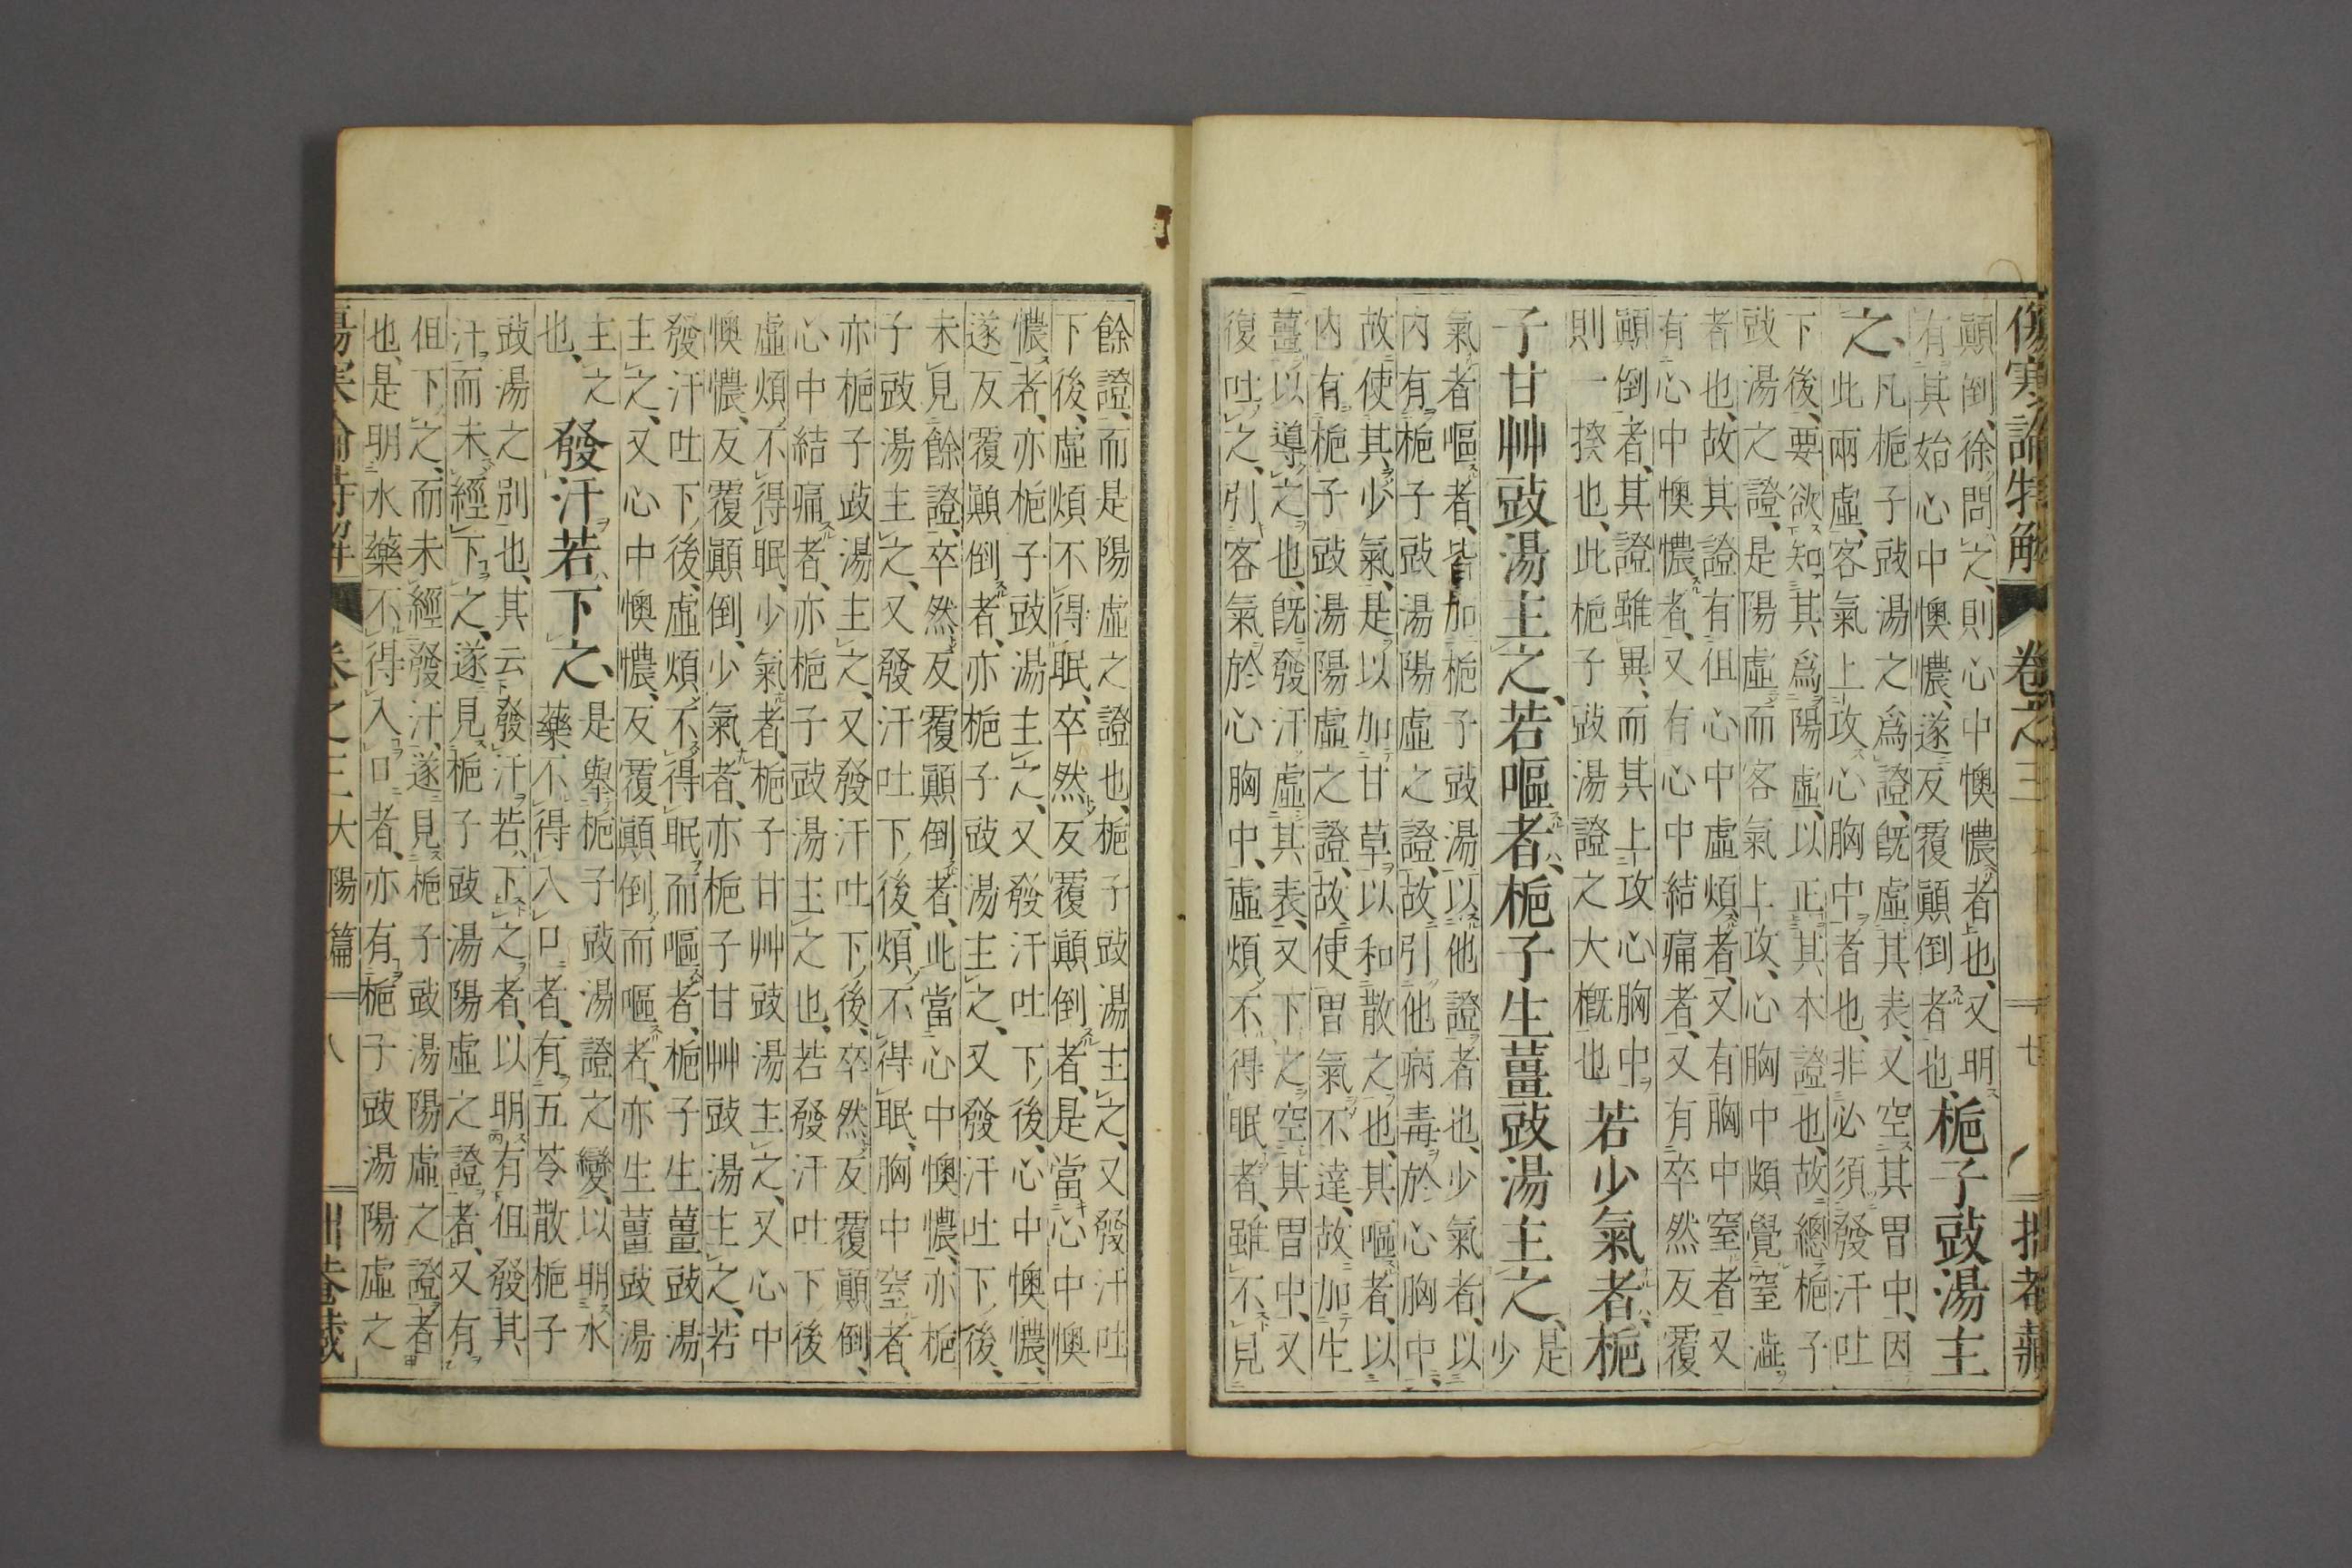 傷寒論特解 卷之三 七
顚倒、徐問之、則心中懊憹者也、又明
有其始心中懊憹、遂反覆顚倒者也、
梔子豉湯主
之、
凡梔子豉湯之爲證、既虛其表、又空其胃中、因
此兩虛、客氣上攻心胸中者也、非必須發汗吐
下後、要欲知其爲陽虛、以正其本證也、故總梔子
豉湯之證、是陽虛而客氣上攻、心胸中頗覺窒澁
者也、故其證有但心中虛煩者、又有胸中窒者、又
有心中懊憹者、又有心中結痛者、又有卒然反覆
顚倒者、其證雖異、而其上攻心胸中
則一揆也、此梔子豉湯證之大槪也
若少氣者、梔
子甘艸豉湯主之、若嘔者、梔子生薑豉湯主之、
是
少
氣者嘔者、皆加梔子豉湯以他證者也、少氣者、以
內有梔子豉湯陽虛之證、故引他病毒於心胸中、
故使其少氣、是以加甘草以和散之也、其嘔者、以
內有梔子豉湯陽虛之證、故使胃氣不達、故加生
薑以導之也、既發汗虛其表、又下之空其胃中、又
復吐之、引客氣於心胸中、虛煩不得眠者、雖不見
餘證、而是陽虛之證也、梔子豉湯主之、又發汗吐
下後、虛煩不得眠、卒然反覆顚倒者、是當心中懊
憹者、亦梔子豉湯主之、又發汗吐下後、心中懊憹、
遂反覆顚倒者、亦梔子豉湯主之、又發汗吐下後、
未見餘證、卒然反覆顚倒者、此當心中懊憹、亦梔
子豉湯主之、又發汗吐下後、煩不得眠、胸中窒者、
亦梔子豉湯主之、又發汗吐下後、卒然反覆顚倒、
心中結痛者、亦梔子豉湯主之也、若發汗吐下後
虛煩不得眠、少氣者、梔子甘艸豉湯主之、又心中
懊憹、反覆顚倒、少氣者、亦梔子甘艸豉湯主之、若
發汗吐下後、虛煩不得眠而嘔者、梔子生薑豉湯
主之、又心中懊憹、反覆顚倒而嘔者、亦生薑豉湯
主之
也、
發汗若下之、
是擧梔子豉湯證之變、以明水
藥不得入口者、有五苓散梔子
豉湯之別也、其云發汗若下之者、以明有但發其
汗而未經下之、遂見梔子豉湯陽虛之證者、又有
但下之、而未經發汗、遂見梔子豉湯陽虛之證者
也、是明水藥不得入口者、亦有梔子豉湯陽虛之
傷寒論特解 卷之三 大陽篇 八